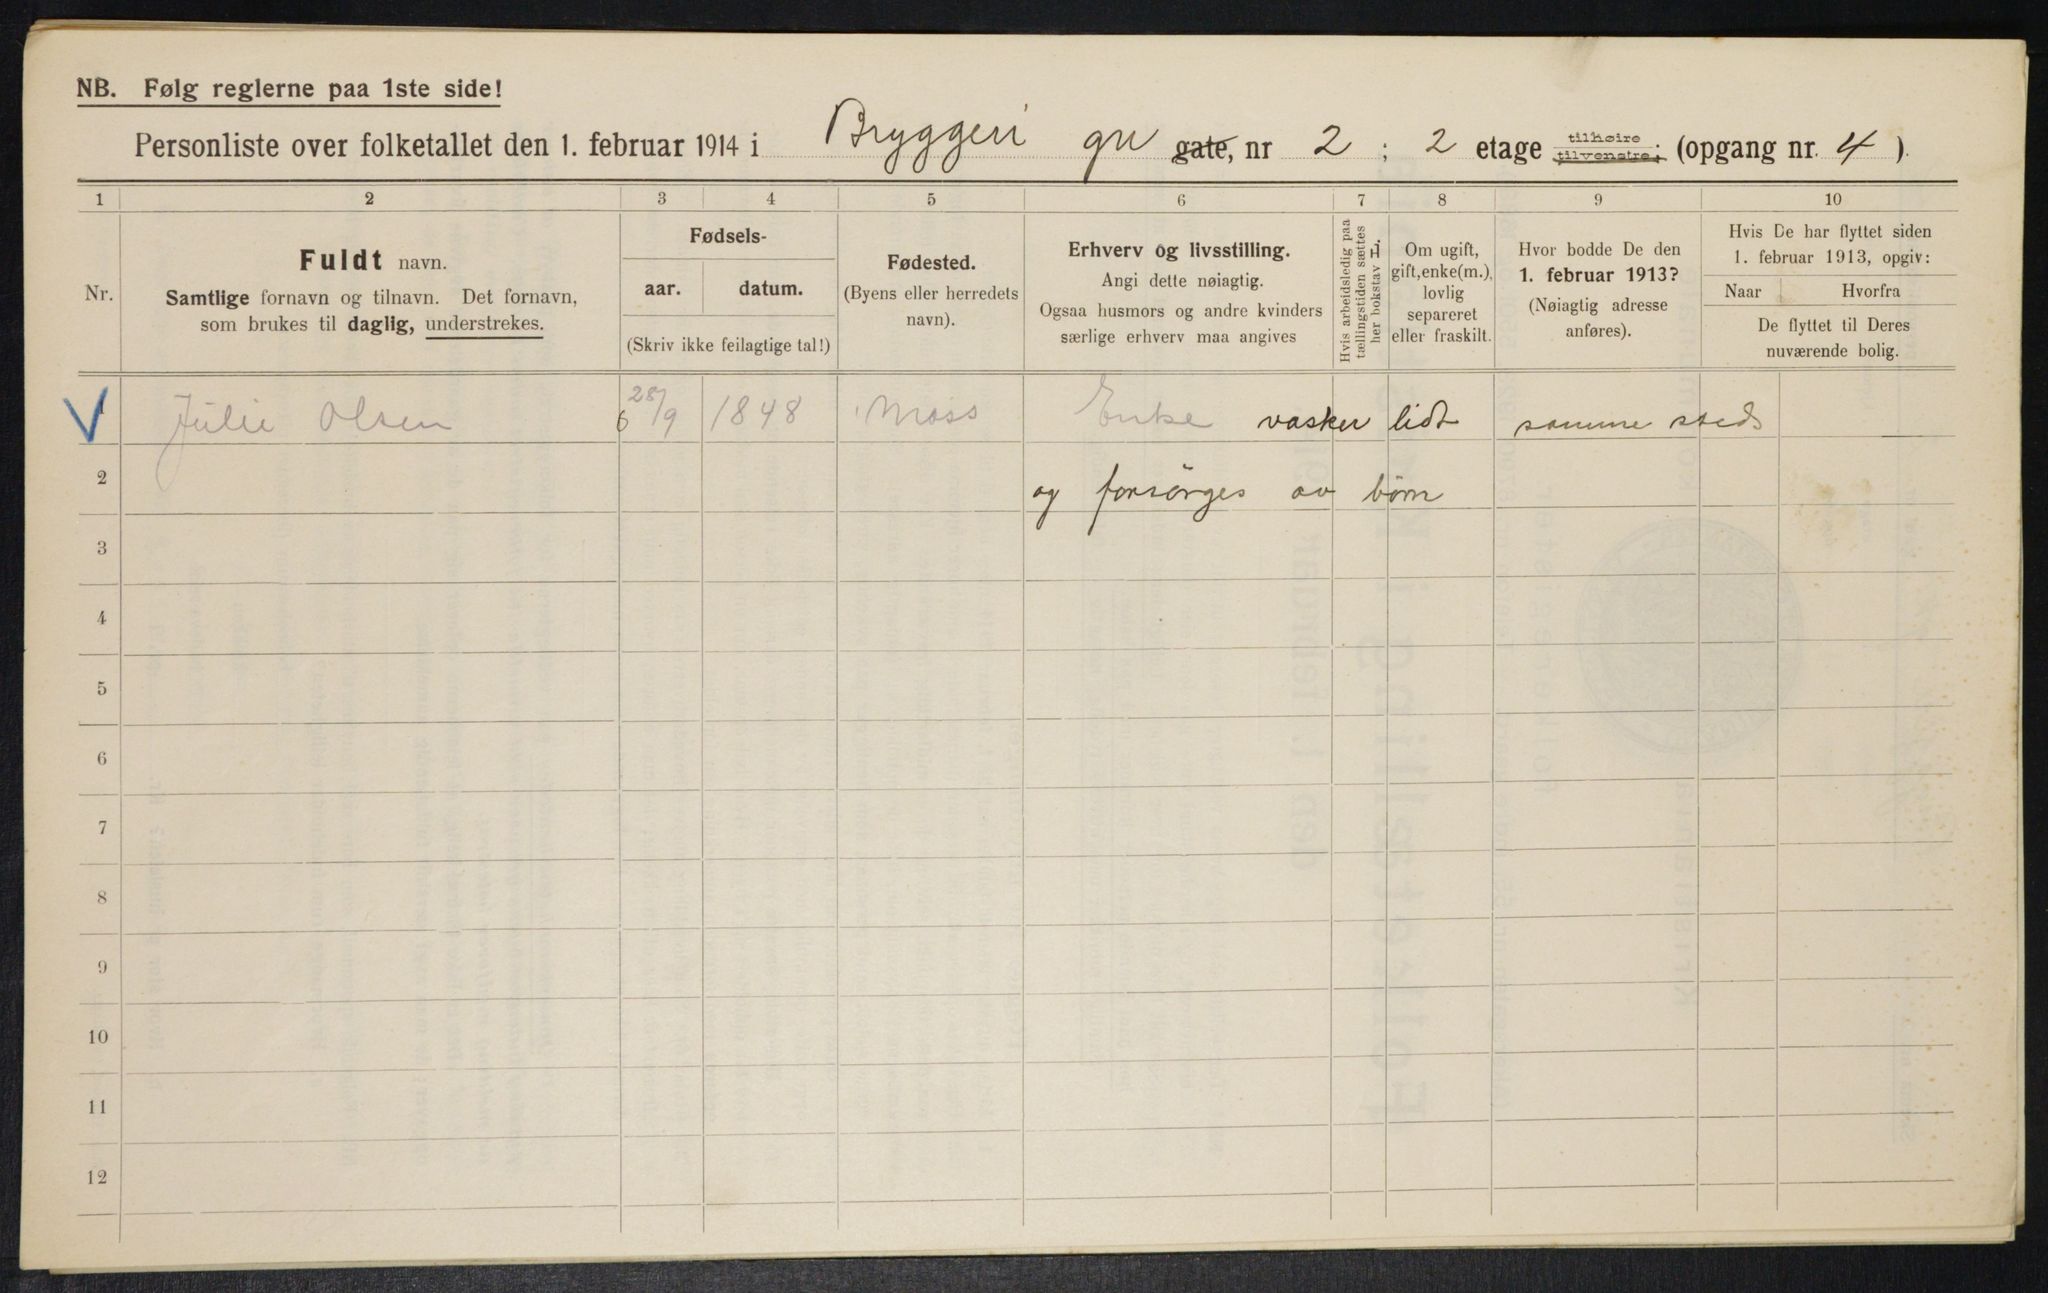 NB. Følg reglerne paa 1ste side!
Personliste over folketallet den 1. februar 1914 i Bryggeri gn gate, nr 2 ; 2 etage tilhøire tilvenstre; (opgang nr. 4 ).
1 2 3 4 5 6 7 8 9 10
Nr.
Fuldt navn.
Samtlige fornavn og tilnavn. Det fornavn,
som brukes til daglig, understrekes.
Fødsels-
aar. datum.
(Skriv ikke feilagtige tal!)
Fødested.
(Byens eller herredets
navn).
Erhverv og livsstilling.
Angi dette nøiagtig.
Ogsaa husmors og andre kvinders
særlige erhverv maa angives
Hvis arbeidsledig paa
tællingstiden sættes
her bokstav L.
Om ugift,
gift, enke(m.),
lovlig
separeret
eller fraskilt.
Hvor bodde De den
1. februar 1913?
(Nøiagtig adresse
anføres).
Hvis De har flyttet siden
1. februar 1913, opgiv:
Naar Hvorfra
De flyttet til Deres
nuværende bolig.
1 Julie Olsen 28/9 1848 Moss Enke vasker lidt samme steds
2 og forsörges av börn
3
4
5
6
7
8
9
10
11
12